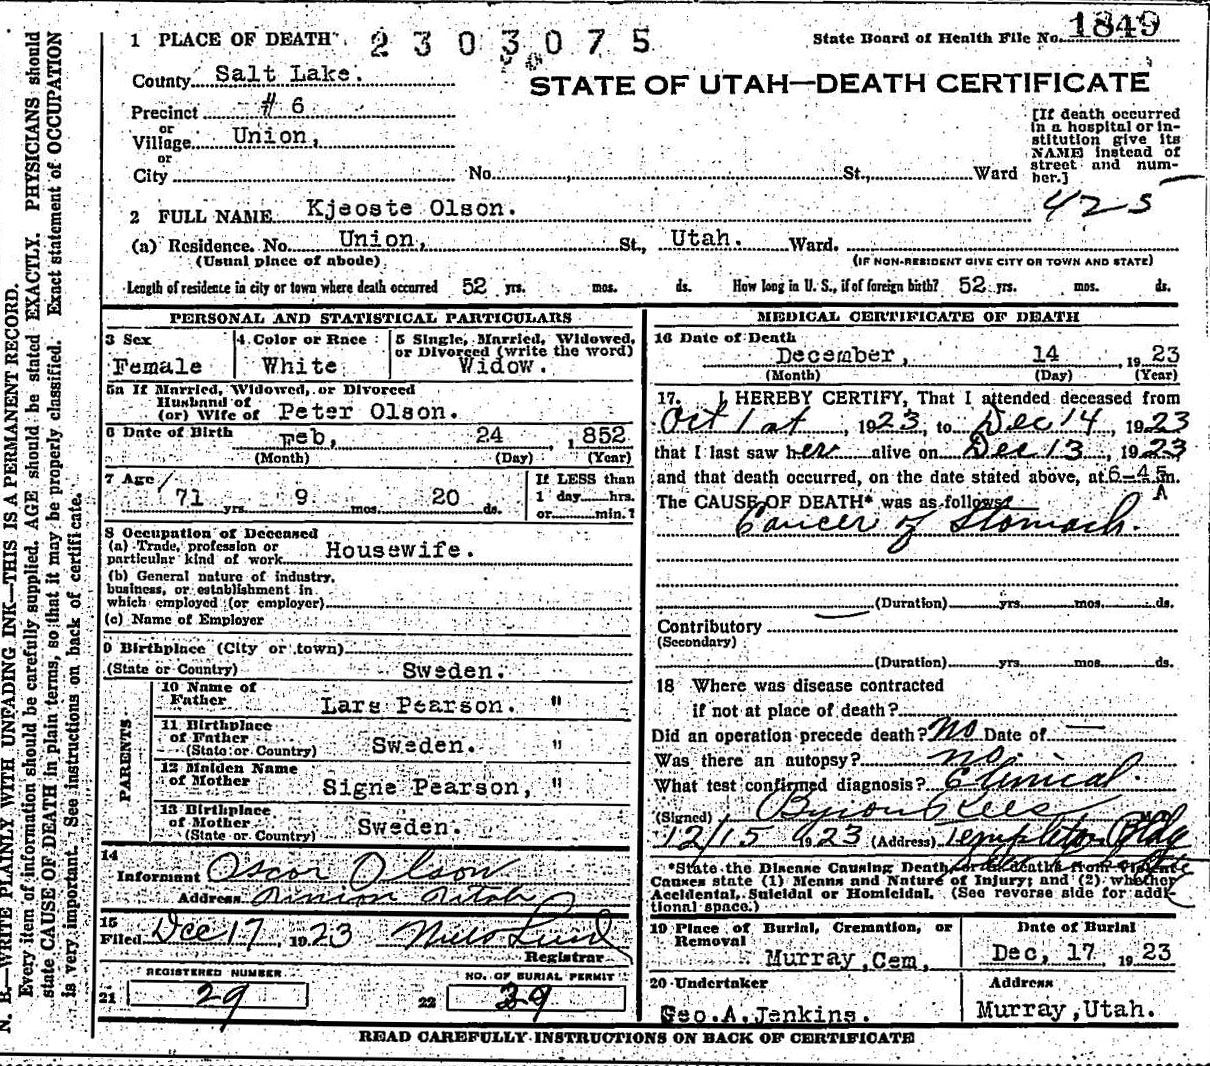 1 PLACE OF DEATH 2303075 State Board of Health File No. 1849
County Salt Lake.
STATE OF UTAH—DEATH CERTIFICATE
Precinct # 6
or
Village Union,
or
City No. St., Ward
[If death occurred
in a hospital or in-
stitution give its
NAME instead of
street and num-
ber.]
425
2 FULL NAME Kjeoste Olson.
(a) Residence. No. Union, St., Utah. Ward.
(Usual place of abode) (IF NON-RESIDENT GIVE CITY OR TOWN AND STATE)
Length of residence in city or town where death occurred 52 yrs. mos. ds. How long in U. S., if of foreign birth? 52 yrs. mos. ds.
PERSONAL AND STATISTICAL PARTICULARS
3 Sex
Female
4 Color or Race
White
5 Single, Married, Widowed,
or Divorced (write the word)
Widow.
5a If Married, Widowed, or Divorced
Husband of
(or) Wife of Peter Olson.
6 Date of Birth Feb, 24 ,1852
(Month) (Day) (Year)
7 Age
71 yrs. 9 mos. 20 ds.
If LESS than
1 day hrs.
or min.?
8 Occupation of Deceased
(a) Trade, profession or
particular kind of work Housewife.
(b) General nature of industry,
business, or establishment in
which employed (or employer)
(c) Name of Employer
9 Birthplace (City or town)
(State or Country) Sweden.
PARENTS
10 Name of
Father Lars Pearson. "
11 Birthplace
of Father
(State or Country) Sweden. "
12 Maiden Name
of Mother Signe Pearson, "
13 Birthplace
of Mother
(State or Country) Sweden.
14
Informant Oscor Olson
Address Union Utah
15
Filed Dec 17 1923 Registrar
REGISTERED NUMBER
21 29
NO. OF BURIAL PERMIT
22 29
MEDICAL CERTIFICATE OF DEATH
16 Date of Death
December, 14 1923
(Month) (Day) (Year)
17. I HEREBY CERTIFY, That I attended deceased from
Oct 1 at, 1923, to Dec 14, 1923
that I last saw her alive on Dec 13, 1923,
and that death occurred, on the date stated above, at 6-45 m.
A
The CAUSE OF DEATH* was as follows:
Cancer of Stomach.
(Duration) yrs. mos. ds.
Contributory
(Secondary)
(Duration) yrs. mos. ds.
18 Where was disease contracted
if not at place of death?
Did an operation precede death? No Date of —
Was there an autopsy? no
What test confirmed diagnosis? Clinical.
(Signed) Byron Rees
12/15 1923 (Address) Templeton Bldg
*State the Disease Causing Death, or in deaths from Violent
Causes state (1) Means and Nature of Injury; and (2) whether
Accidental, Suicidal or Homicidal. (See reverse side for addi-
tional space.)
19 Place of Burial, Cremation, or
Removal
Murray, Cem,
Date of Burial
Dec, 17 1923
20 Undertaker
Geo.A.Jenkins.
Address
Murray,Utah.
READ CAREFULLY INSTRUCTIONS ON BACK OF CERTIFICATE
N. B.—WRITE PLAINLY WITH UNFADING INK—THIS IS A PERMANENT RECORD.
Every item of information should be carefully supplied. AGE should be stated EXACTLY. PHYSICIANS should
state CAUSE OF DEATH in plain terms, so that it may be properly classified. Exact statement of OCCUPATION
is very important. See instructions on back of certificate.